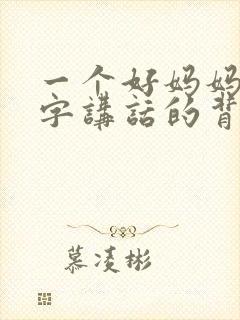 一个好妈妈
字講話的背
慕凌彬